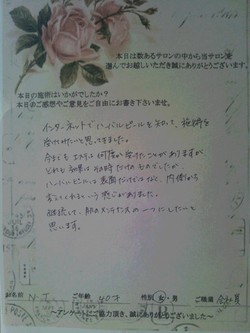 本日は数あるサロンの中から当サロンを
選んでお越しいただき誠にありがとうございます。
本日の施術はいかがでしたか?
本日のご感想やご意見をご自由にお書き下さいませ。
インターネットでハーバルピールを知って、施術を
受けてみたいと思ってきました。
今までも エステは何度か受けたことがありますが
どれも 効果は その時だけのものでしたが
ハーバルピールは 表面だけでなく 内側から
という感じがありました。
継続して、肌のメンテナンスの一つにしたいと
思います。
お名前 N.I ご年齢 40才 性別 女・男 ご職業 会社員
~アンケートにご協力頂き、誠にありがとうございました~